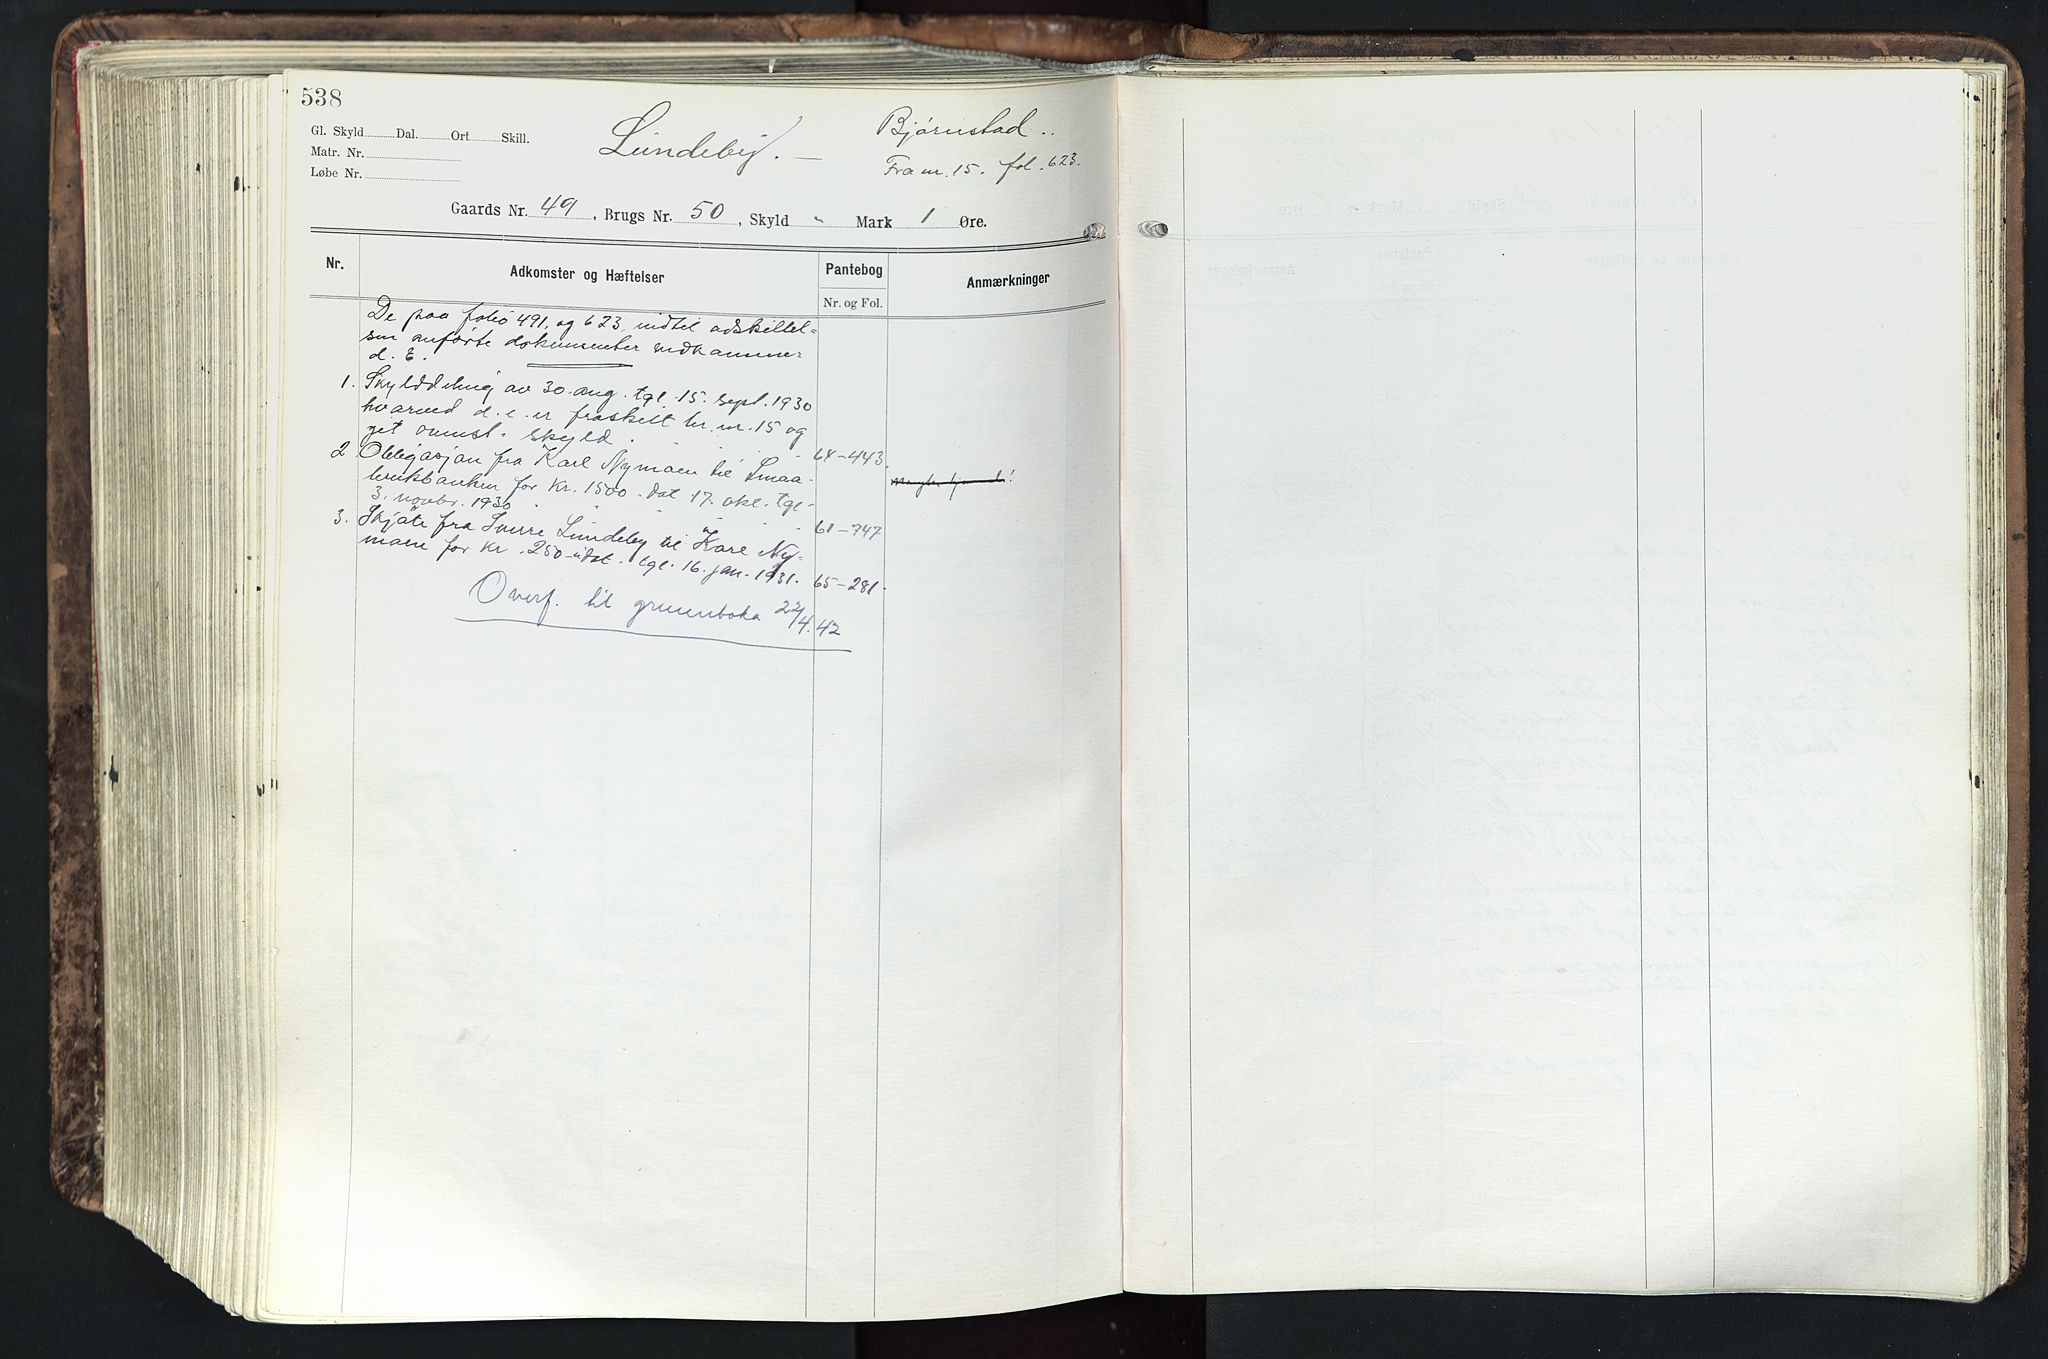 538
Gl. Skyld Dal. Ort Skill.
Matr. Nr.
Løbe Nr.
Lundeby. — Bjørnstad..
Fra nr. 15. fol. 623.
Gaards Nr. 49, Brugs Nr. 50, Skyld " Mark 1 Øre.
Nr. Adkomster og Hæftelser Pantebog Anmærkninger
Nr. og Fol.
De paa folio 491, og 623, indtil adskillel=
sen anførte dokumenter vedkommer
d. E.
1. Skylddeling av 30. aug. tgl. 15. sept. 1930
hvorved d. e. er fraskilt br. nr. 15 og
git ovenst. skyld. 64-443.
2 Obligasjon fra Karl Nymoen til Smaa-
brukbanken for kr. 1500 - dat 17. okt. tgl-
3. novbr. 1930 " " " 61-747
3. Skjøte fra Sverre Lundeby til Karl Ny-
moen for kr. 250 - udat. tgl. 16. jan. 1931. 65-281.
Overf. til grunnboka 22/4.42